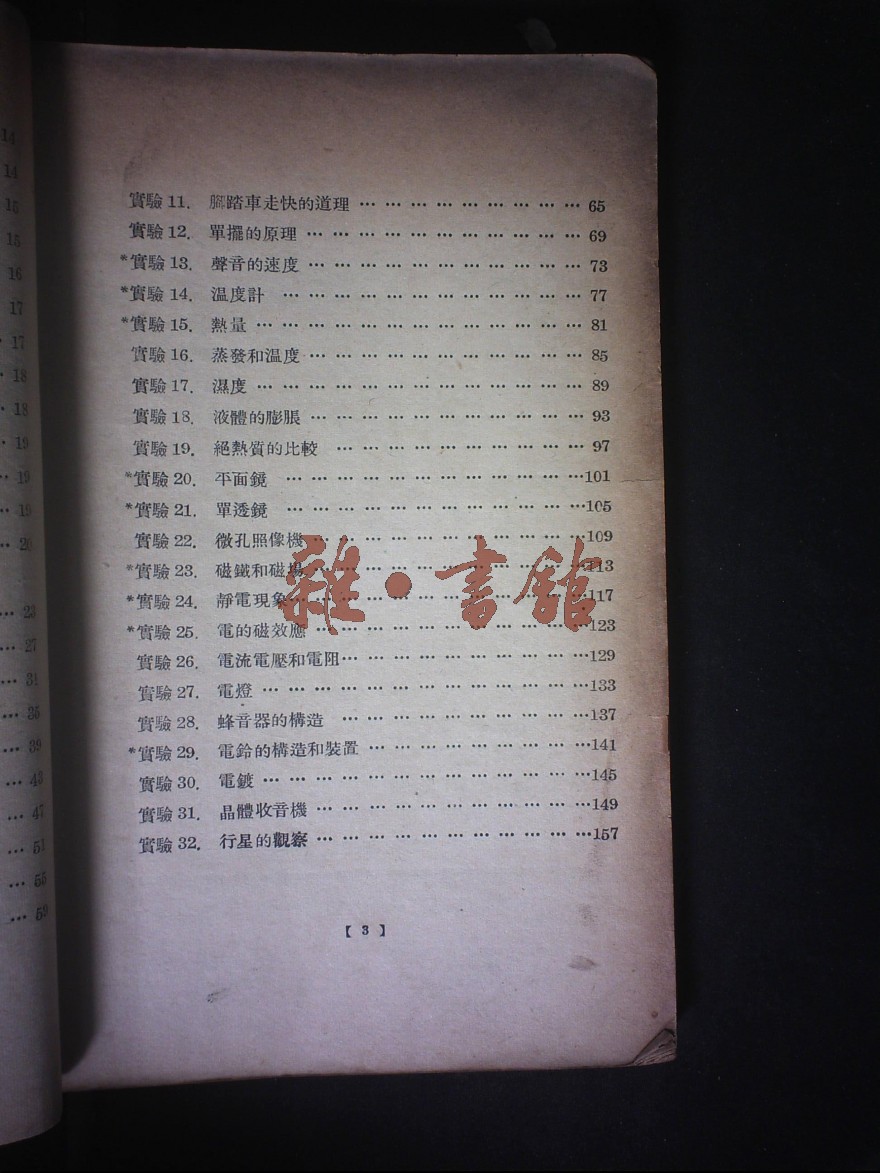 實驗 11. 腳踏車走快的道理 … … … … … … … … … 65
實驗 12. 單擺的原理 … … … … … … … … … … … 69
*實驗 13. 聲音的速度 … … … … … … … … … … … 73
*實驗 14. 温度計 … … … … … … … … … … … … 77
*實驗 15. 熱量 … … … … … … … … … … … … … 81
實驗 16. 蒸發和温度 … … … … … … … … … … … 85
實驗 17. 濕度 … … … … … … … … … … … … … 89
實驗 18. 液體的膨脹 … … … … … … … … … … … 93
實驗 19. 絕熱質的比較 … … … … … … … … … … 97
*實驗 20. 平面鏡 … … … … … … … … … … … …101
*實驗 21. 單透鏡 … … … … … … … … … … … …105
實驗 22. 微孔照像機 … … … … … … … … … … …109
*實驗 23. 磁鐵和磁場 … … … … … … … … … … …113
*實驗 24. 靜電現象 … … … … … … … … … … … …117
*實驗 25. 電的磁效應 … … … … … … … … … … …123
實驗 26. 電流電壓和電阻 … … … … … … … … … …129
實驗 27. 電燈 … … … … … … … … … … … … …133
實驗 28. 蜂音器的構造 … … … … … … … … … …137
*實驗 29. 電鈴的構造和裝置 … … … … … … … … …141
實驗 30. 電鍍 … … … … … … … … … … … … …145
實驗 31. 晶體收音機 … … … … … … … … … … …149
實驗 32. 行星的觀察 … … … … … … … … … … …157
【 3 】
雜·書館
14
14
15
15
16
17
17
18
18
19
19
19
20
23
27
31
35
39
43
47
51
55
59